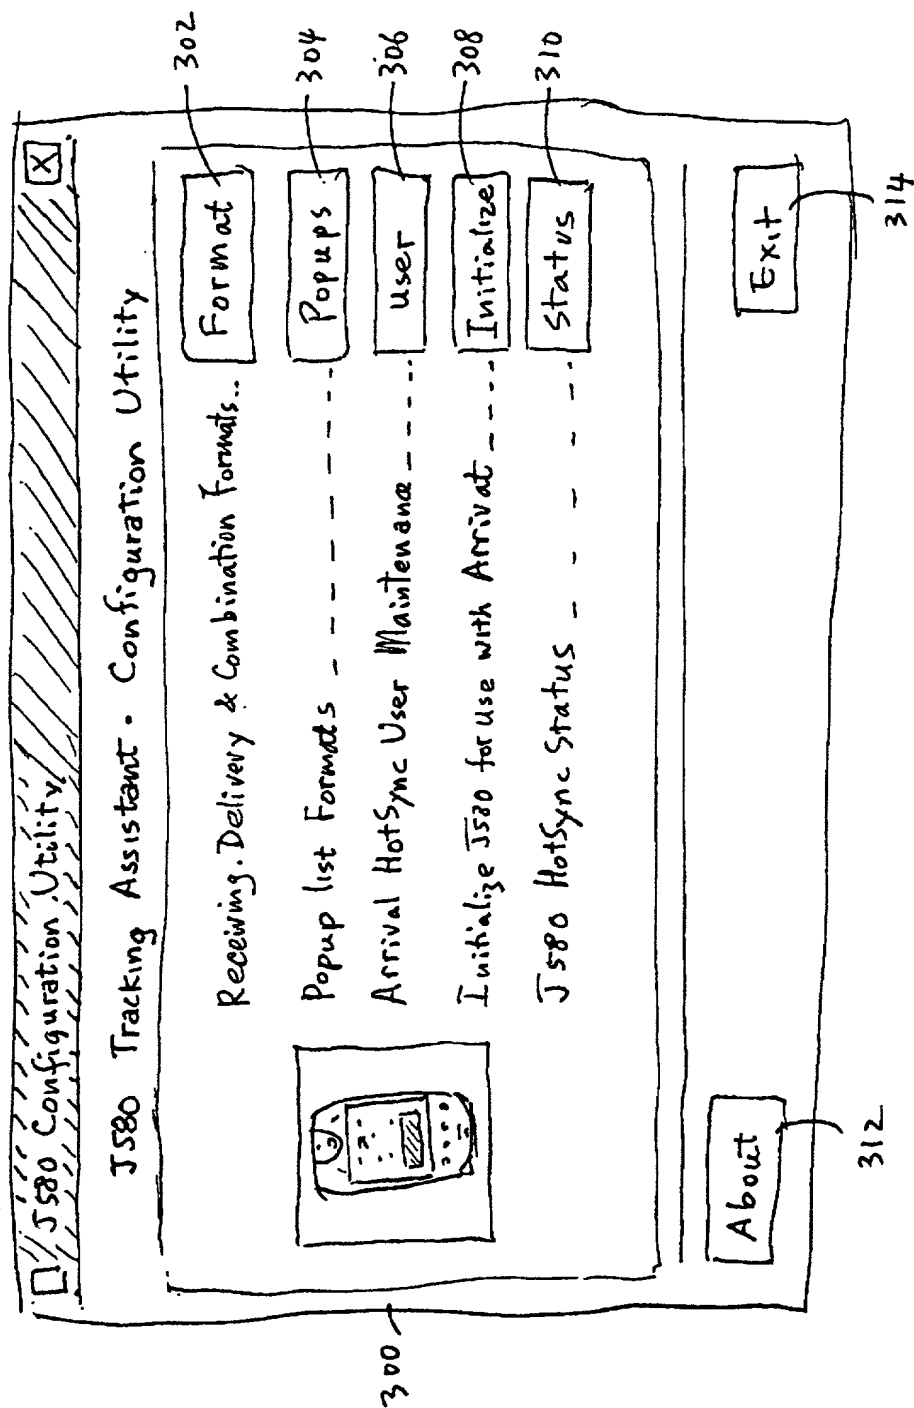 J580 Configuration Utility
X
J580 Tracking Assistant - Configuration Utility
Receiving. Delivery & Combination Formats..
Format
302
Popup list Formats
Popups
304
Arrival HotSync User Maintenance
User
306
Initialize J580 for Use with Arrivat
Initialize
308
J580 HotSync Status
Status
310
300
About
312
Exit
314